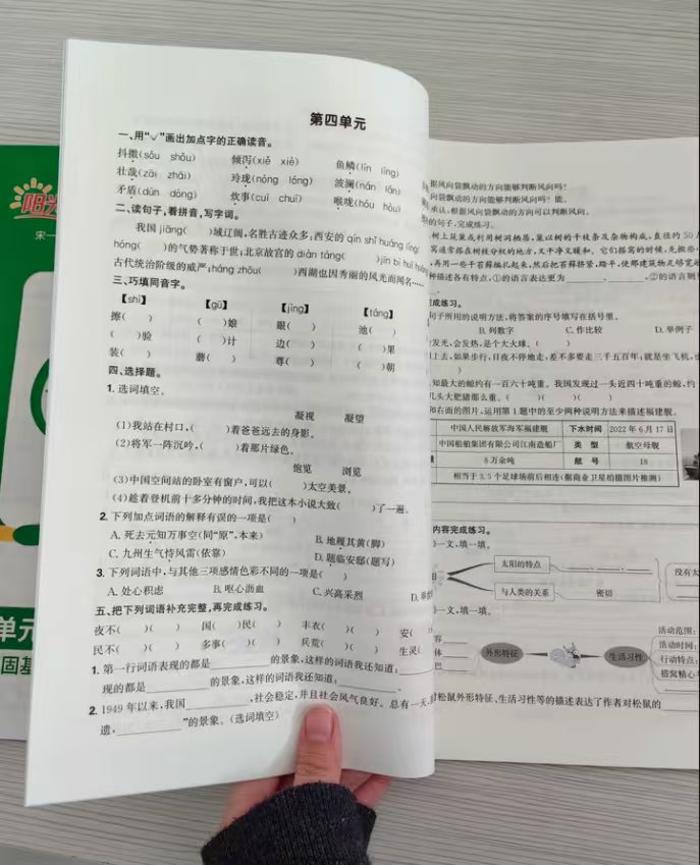 第四单元
一、用“✓”画出加点字的正确读音。
抖擞(sǒu shǒu) 倾泻(xiě xiè) 鱼鳞(lín líng)
壮哉(zāi zhāi) 玲珑(nóng lóng) 波澜(nán lán)
矛盾(dùn dòng) 炊事(cuī chuī) 喉咙(hóu hòu)
二、读句子,看拼音,写字词。
我国jiāng( )域辽阔,名胜古迹众多:西安的qín shǐ huáng líng
hóng( )的气势著称于世;北京故宫的diàn táng( )jīn bì huī huáng
古代统治阶级的威严;háng zhōu( )西湖也因秀丽的风光而闻名……
三、巧填同音字。
【shì】 【gū】 【jīng】 【táng】
擦( ) ( )娘 眼( ) 池( )
( )验 ( )计 边( ) ( )果
装( ) 蘑( ) 尊( ) ( )朝
四、选择题。
1. 选词填空。
凝视 凝望
(1)我站在村口,( )着爸爸远去的身影。
(2)将军一阵沉吟,( )着那片绿色。
饱览 浏览
(3)中国空间站的卧室有窗户,可以( )太空美景。
(4)趁着登机前十多分钟的时间,我把这本小说大致( )了一遍。
2. 下列加点词语的解释有误的一项是( )
A. 死去元知万事空(同“原”,本来) B. 地履其黄(脚)
C. 九州生气恃风雷(依靠) D. 题临安邸(题写)
3. 下列词语中,与其他三项感情色彩不同的一项是( )
A. 处心积虑 B. 呕心沥血 C. 兴高采烈 D.
五、把下列词语补充完整,再完成练习。
夜不( )( ) 国( )民( ) 丰衣( )( ) 安(
民不( )( ) 多事( )( ) 兵荒( )( ) 生灵(
1. 第一行词语表现的都是________的景象,这样的词语我还知道:
现的都是________的景象,这样的词语我还知道:________。
2. 1949年以来,我国________,社会稳定,并且社会风气良好。总有一天,
遗,________”的景象。(选词填空)
据风向袋飘动的方向能够判断风向吗?
风向袋飘动的方向能够判断风向吗?能。
承认,根据风向袋飘动的方向可以判断风向。
的句子,完成练习。
树上筑巢或利用树洞栖居,巢以树的干枝条及杂物构成,直径约50
窝通常搭在树枝分杈的地方,又干净又暖和。它们搭窝的时候,先搬些
种描述各有特点,①的语言表达更为________、________,②的语言则
成练习。
句子所用的说明方法,将答案的序号填写在括号里。
B. 列数字 C. 作比较 D. 举例子
发光,会发热,是个大火球。( )
上去,如果步行,日夜不停地走,差不多要走三千五百年;就是坐飞机,
知最大的鲸约有一百六十吨重。我国发现过一头近四十吨重的鲸,约
几头大肥猪那么重。( )( )( )
右面的图片,运用第1题中的至少两种说明方法来描述福建舰。
中国人民解放军海军福建舰 下水时间 2022年6月17日
中国船舶集团有限公司江南造船厂 类 型 航空母舰
8万余吨 舷 号 18
相当于3.5个足球场前后相连(据商业卫星拍摄图片推测)
内容完成练习。
一文,填一填。
太阳的特点
与人类的关系 密切
没有太
一文,填一填。
外形特征 生活习性
活动范围:
活动时间:
行动特点:
搭窝精心
对松鼠外形特征、生活习性等的描述表达了作者对松鼠的
阳光
宋
单元
固基